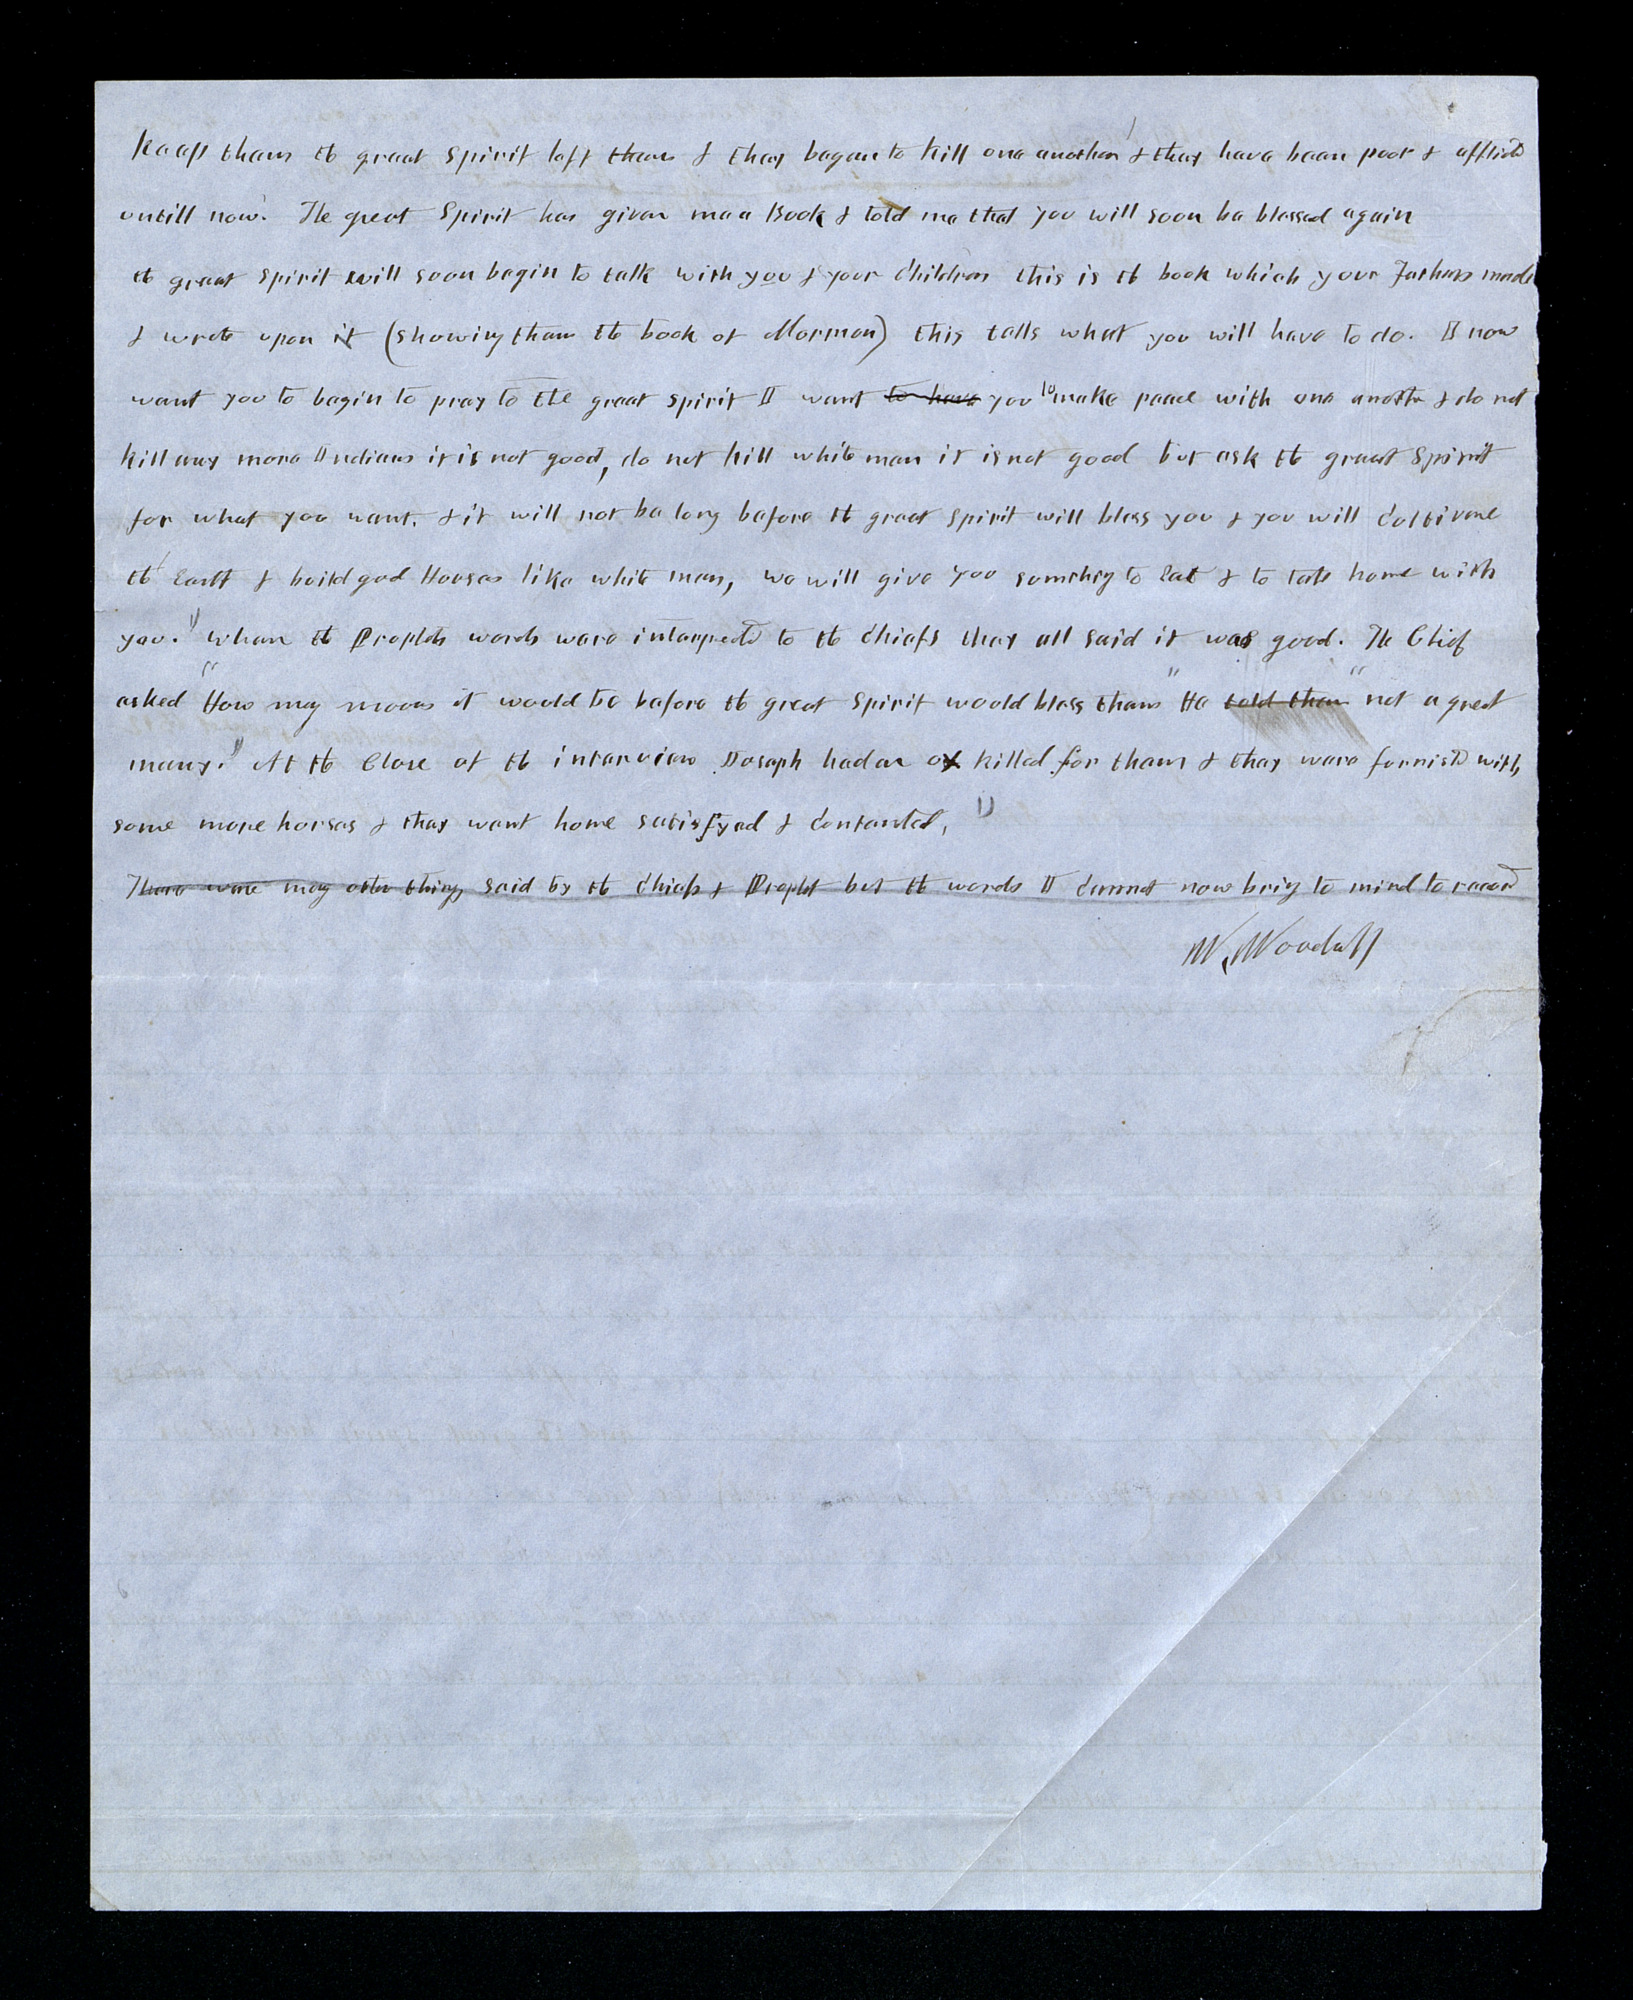 keep them the great spirit left them & they began to kill one another & they have been poor & afflictd
untill now. The great Spirit has given me a Book & told me that you will soon be blessed again
the great spirit will soon begin to talk with you & your Children this is the book which your Fathers made
I wrote upon it (showing them the book of Mormon) this tells what you will have to do. I now
want you to begin to pray to the great spirit I want to have you to make peace with one anothr & do not
kill any more Indians it is not good, do not kill white man it is not good but ask the great Spirit
for what you want. & it will not be long before the great spirit will bless you & you will Cultivate
the Earth & build good Houses like white men, we will give you something to Eat & to take home with
you." when the Prophets words were interpretd to the Chiefs they all said it was good. The Chief
asked "How many moons it would be before the great spirit would bless them" He told them "not a great
many." At the Close of the interview Joseph had an ox killed for them & they were furnishd with
some more horses & they went home satisfyed & Contented,
There were many other things said by the Chiefs & Prophet but the words I cannot now bring to mind to record
W. Woodruff